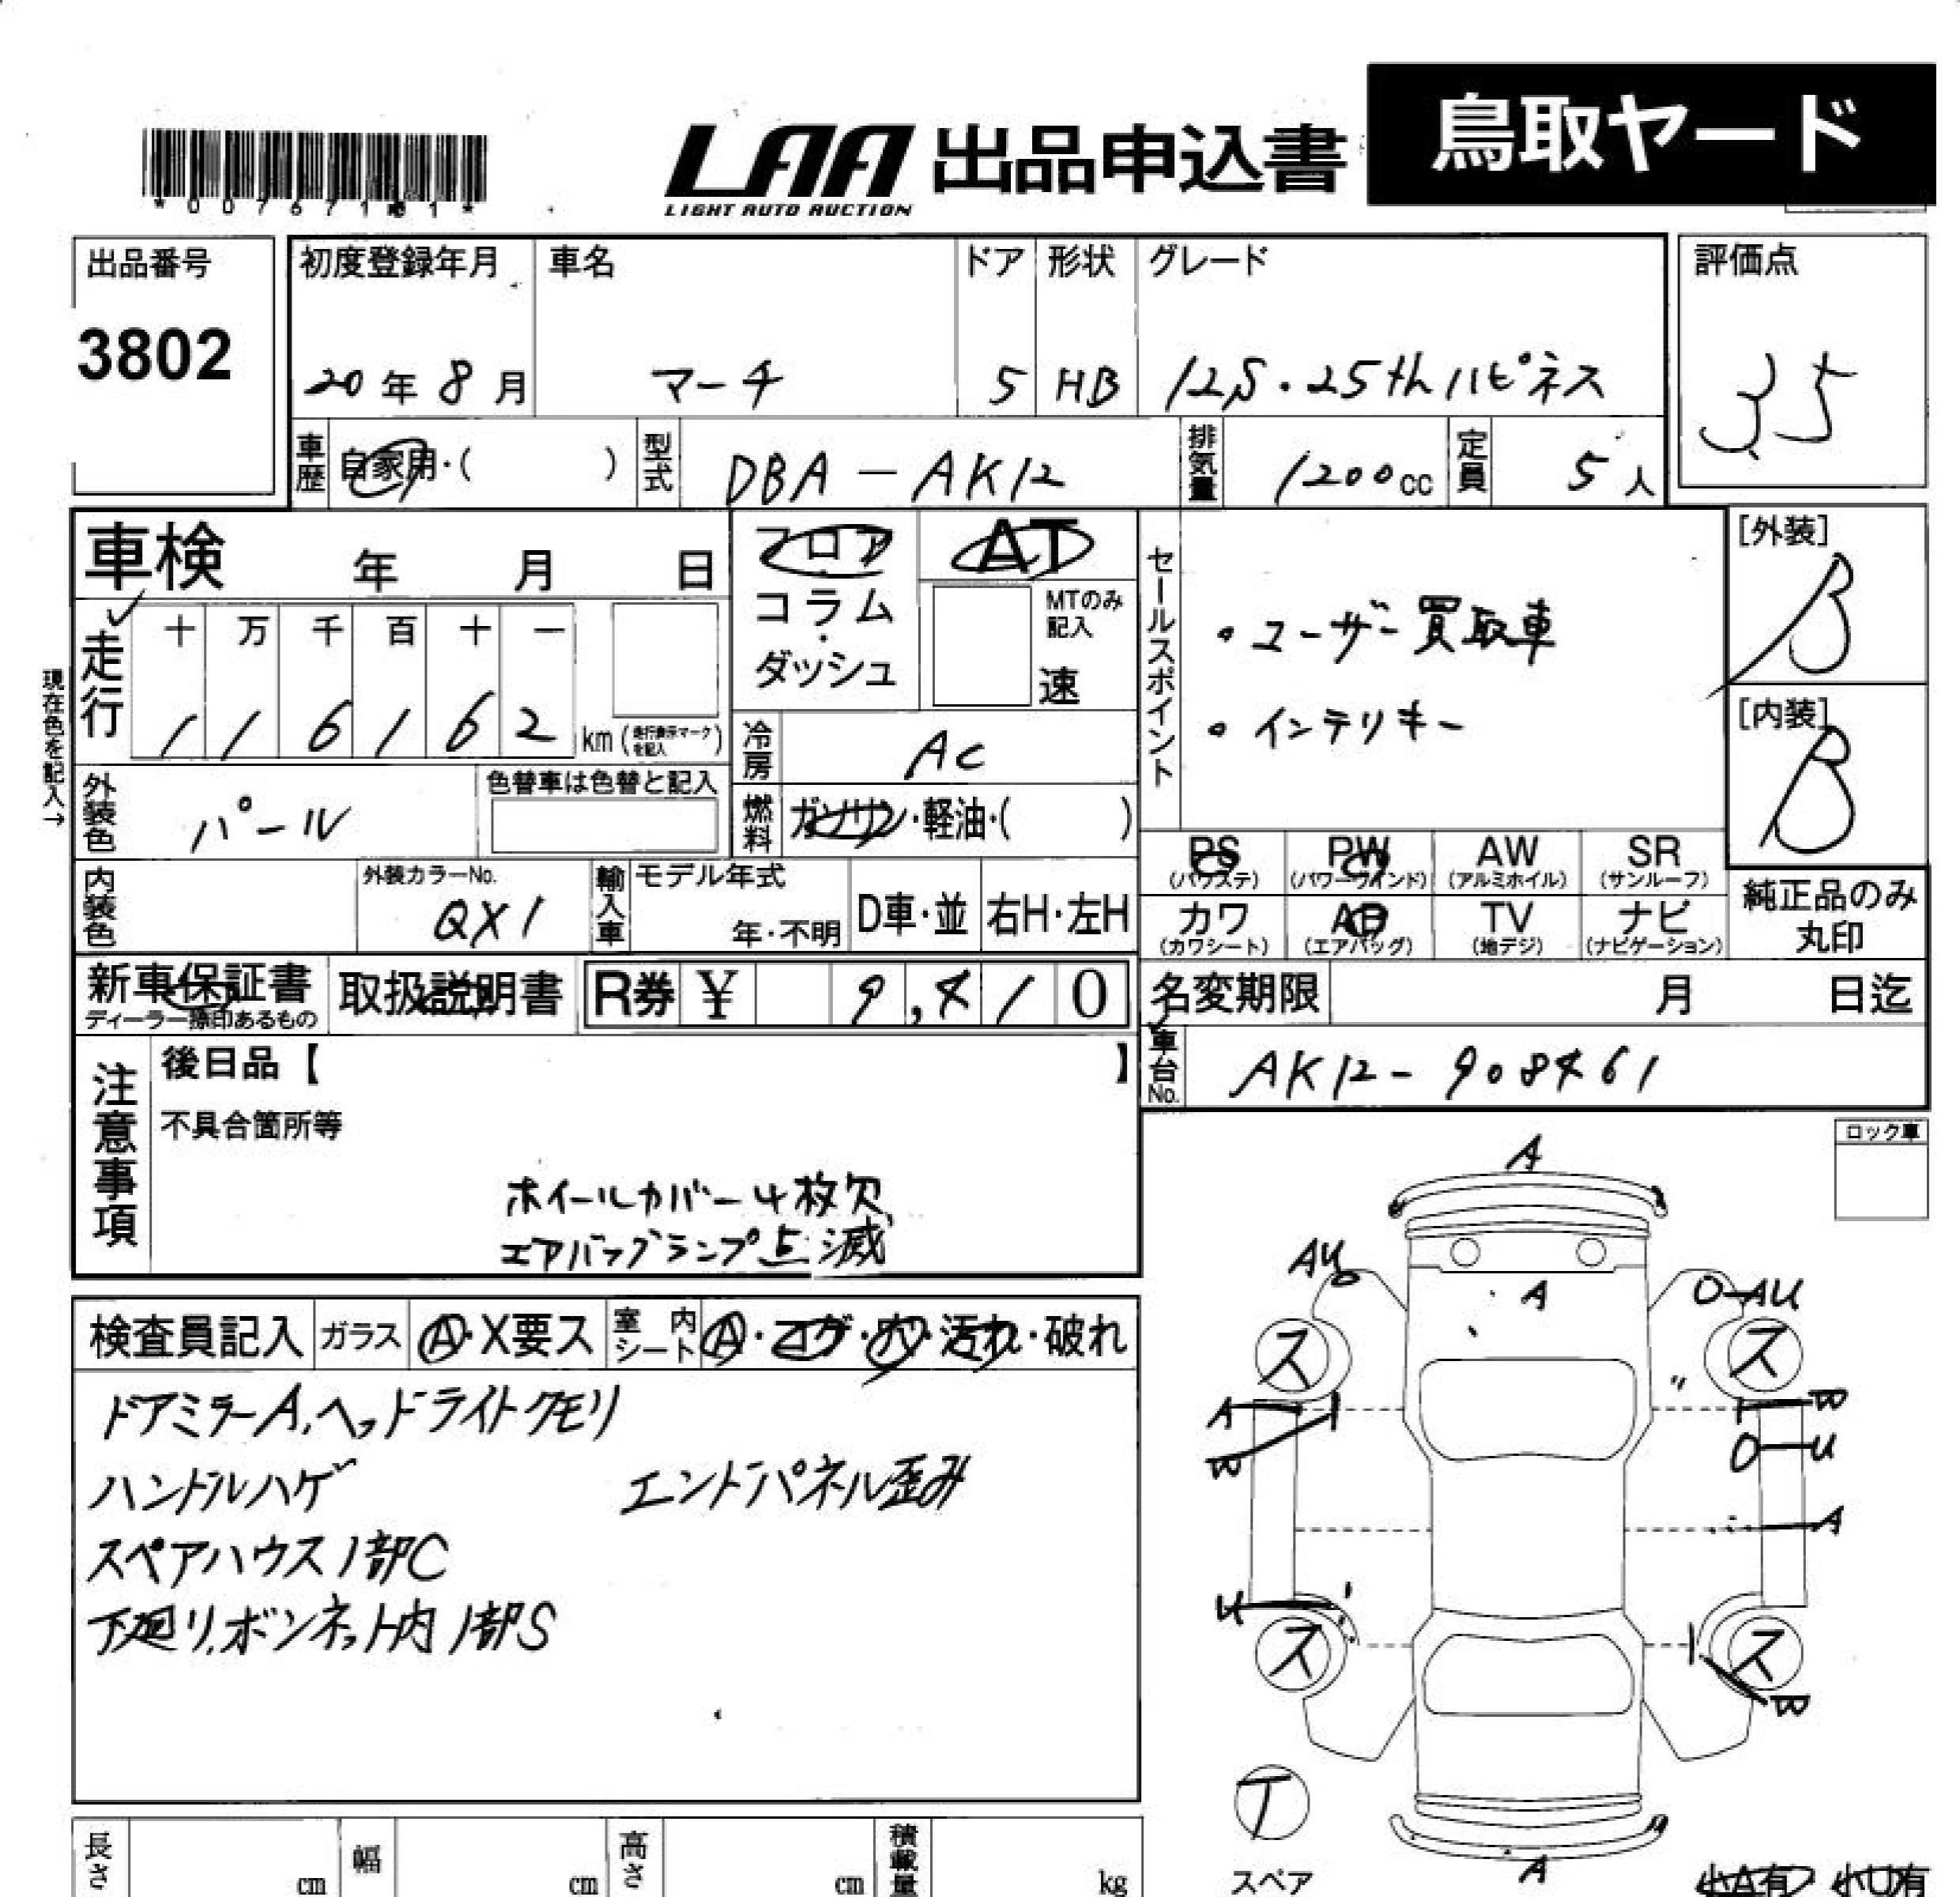 *00767101*
LAA 出品申込書
LIGHT AUTO AUCTION
鳥取ヤード
出品番号
3802
初度登録年月
20年8月
車名
マーチ
ドア
5
形状
HB
グレード
12S・25thハピネス
評価点
3.5
車歴 自家用・( )
型式 DBA-AK12
排気量 1200cc
定員 5人
車検 年 月 日
走行
十 万 千 百 十 一
1 1 6 1 6 2 km (走行表示マークを記入)
現在色を記入→
フロア
・
コラム
・
ダッシュ
AT
MTのみ
記入
速
冷房 AC
燃料 ガソリン・軽油・( )
セールスポイント
・ユーザー買取車
・インテリキー
[外装]
B
[内装]
B
外装色 パール
色替車は色替と記入
内装色
外装カラーNo.
QX1
輸入車
モデル年式
年・不明
D車・並
右H・左H
PS
(パワステ)
PW
(パワーウインド)
AW
(アルミホイル)
SR
(サンルーフ)
カワ
(カワシート)
AB
(エアバッグ)
TV
(地デジ)
ナビ
(ナビゲーション)
純正品のみ
丸印
新車保証書
ディーラー捺印あるもの
取扱説明書
R券 ¥ 9,410
名変期限 月 日迄
車台No. AK12-908461
注意事項
後日品【 】
不具合箇所等
ホイールカバー4枚欠
エアバッグランプ点滅
ロック車
検査員記入
ガラス Ⓐ・X要ス
室内シート Ⓐ・コゲ・穴・汚れ・破れ
ドアミラーA、ヘッドライトクモリ
ハンドルハゲ エンドパネル歪み
スペアハウス1部C
下廻り、ボンネット内1部S
A
AU
A
AU
ス
ス
A
W
W
U
A
U
ス
ス
W
T
スペア
A
小A有・小U有
長さ cm
幅 cm
高さ cm
積載量 kg